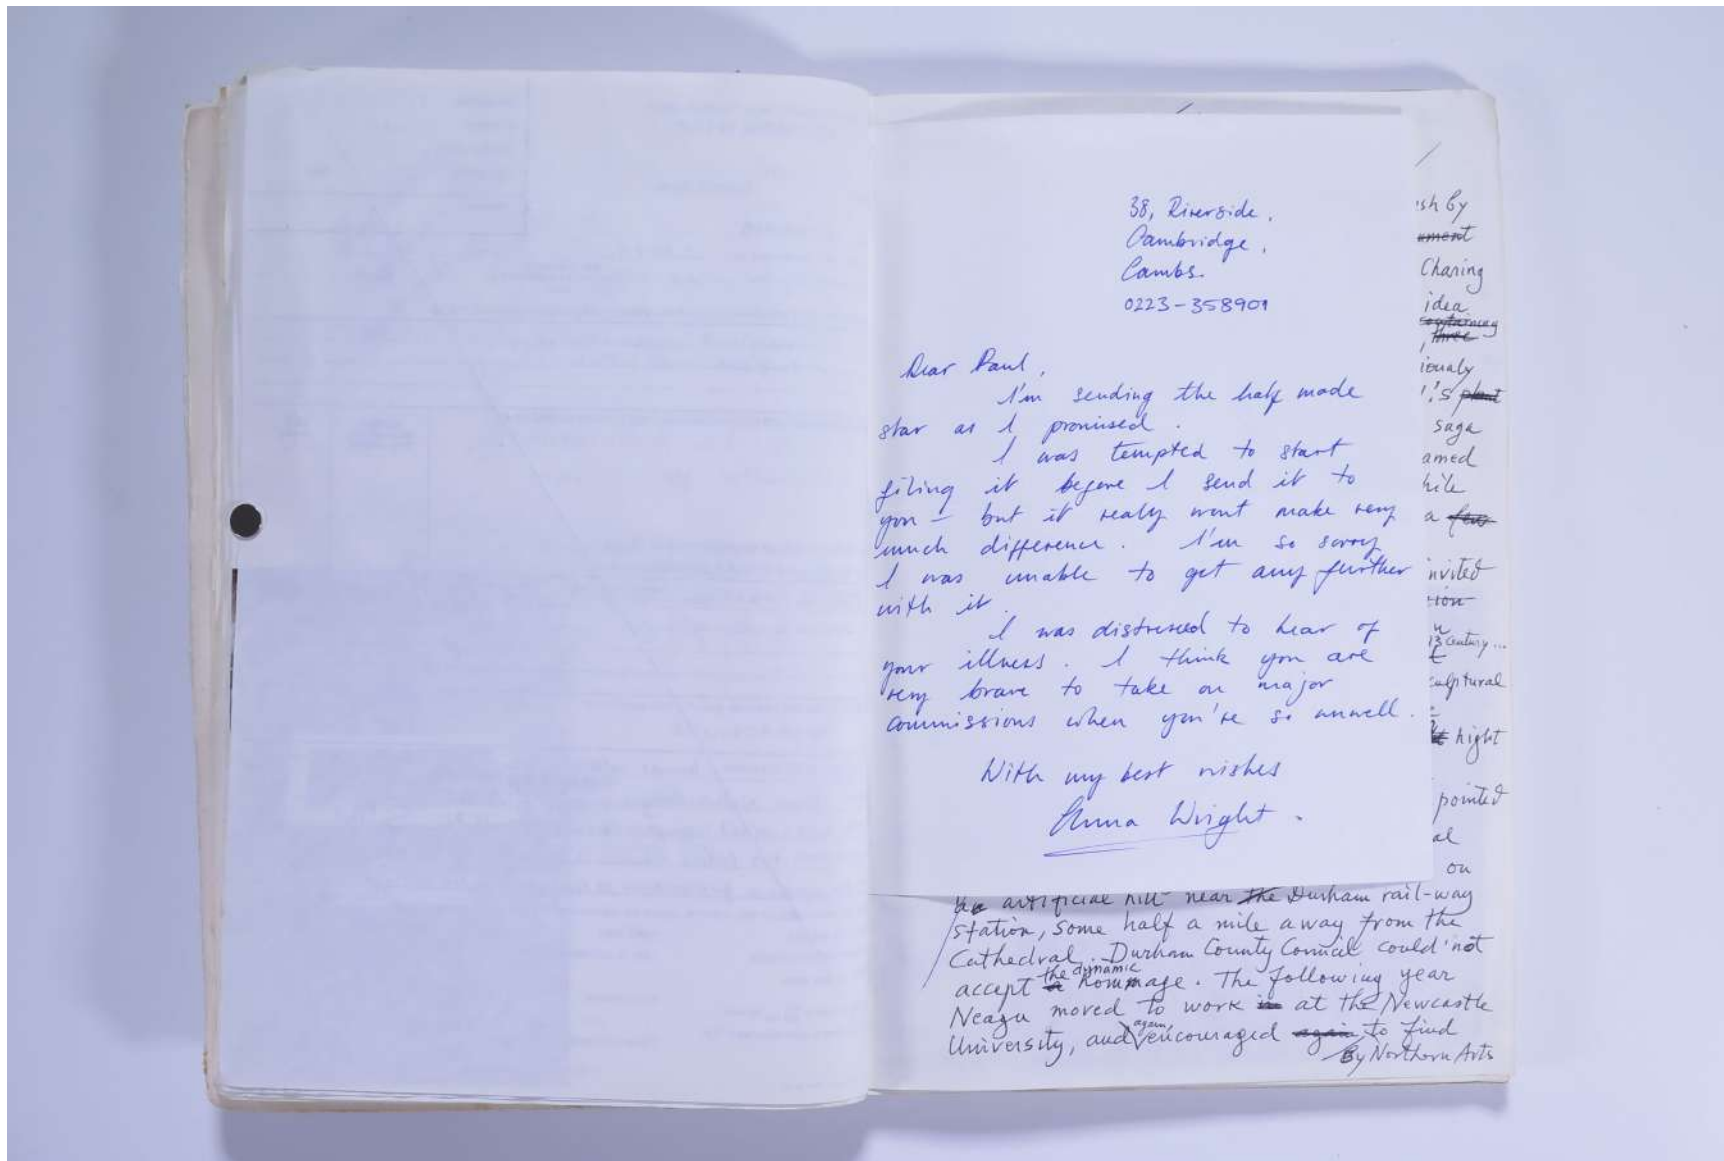 38, Riverside,
Cambridge,
Cambs.
0223-358901
Dear Paul,
I'm sending the half made
star as I promised.
I was tempted to start
filing it before I send it to
you - but it realy wont make very
much difference. I'm so sorry
I was unable to get any further
with it.
I was distressed to hear of
your illness. I think you are
very brave to take on major
commissions when you're so unwell.
With my best wishes
Anna Wright.
sh by
ument
Charing
idea
three
iously
's plant
saga
amed
hile
a few
nvited
tion
13 Century...
culptural
hight
pointed
al
on
artificial hill near the Durham rail-way
station, some half a mile away from the
Cathedral. Durham County Council could not
the dynamic
accept a hommage. The following year
Neagu moved to work in at the Newcastle
again,
University, and encouraged again to find
By Northern Arts